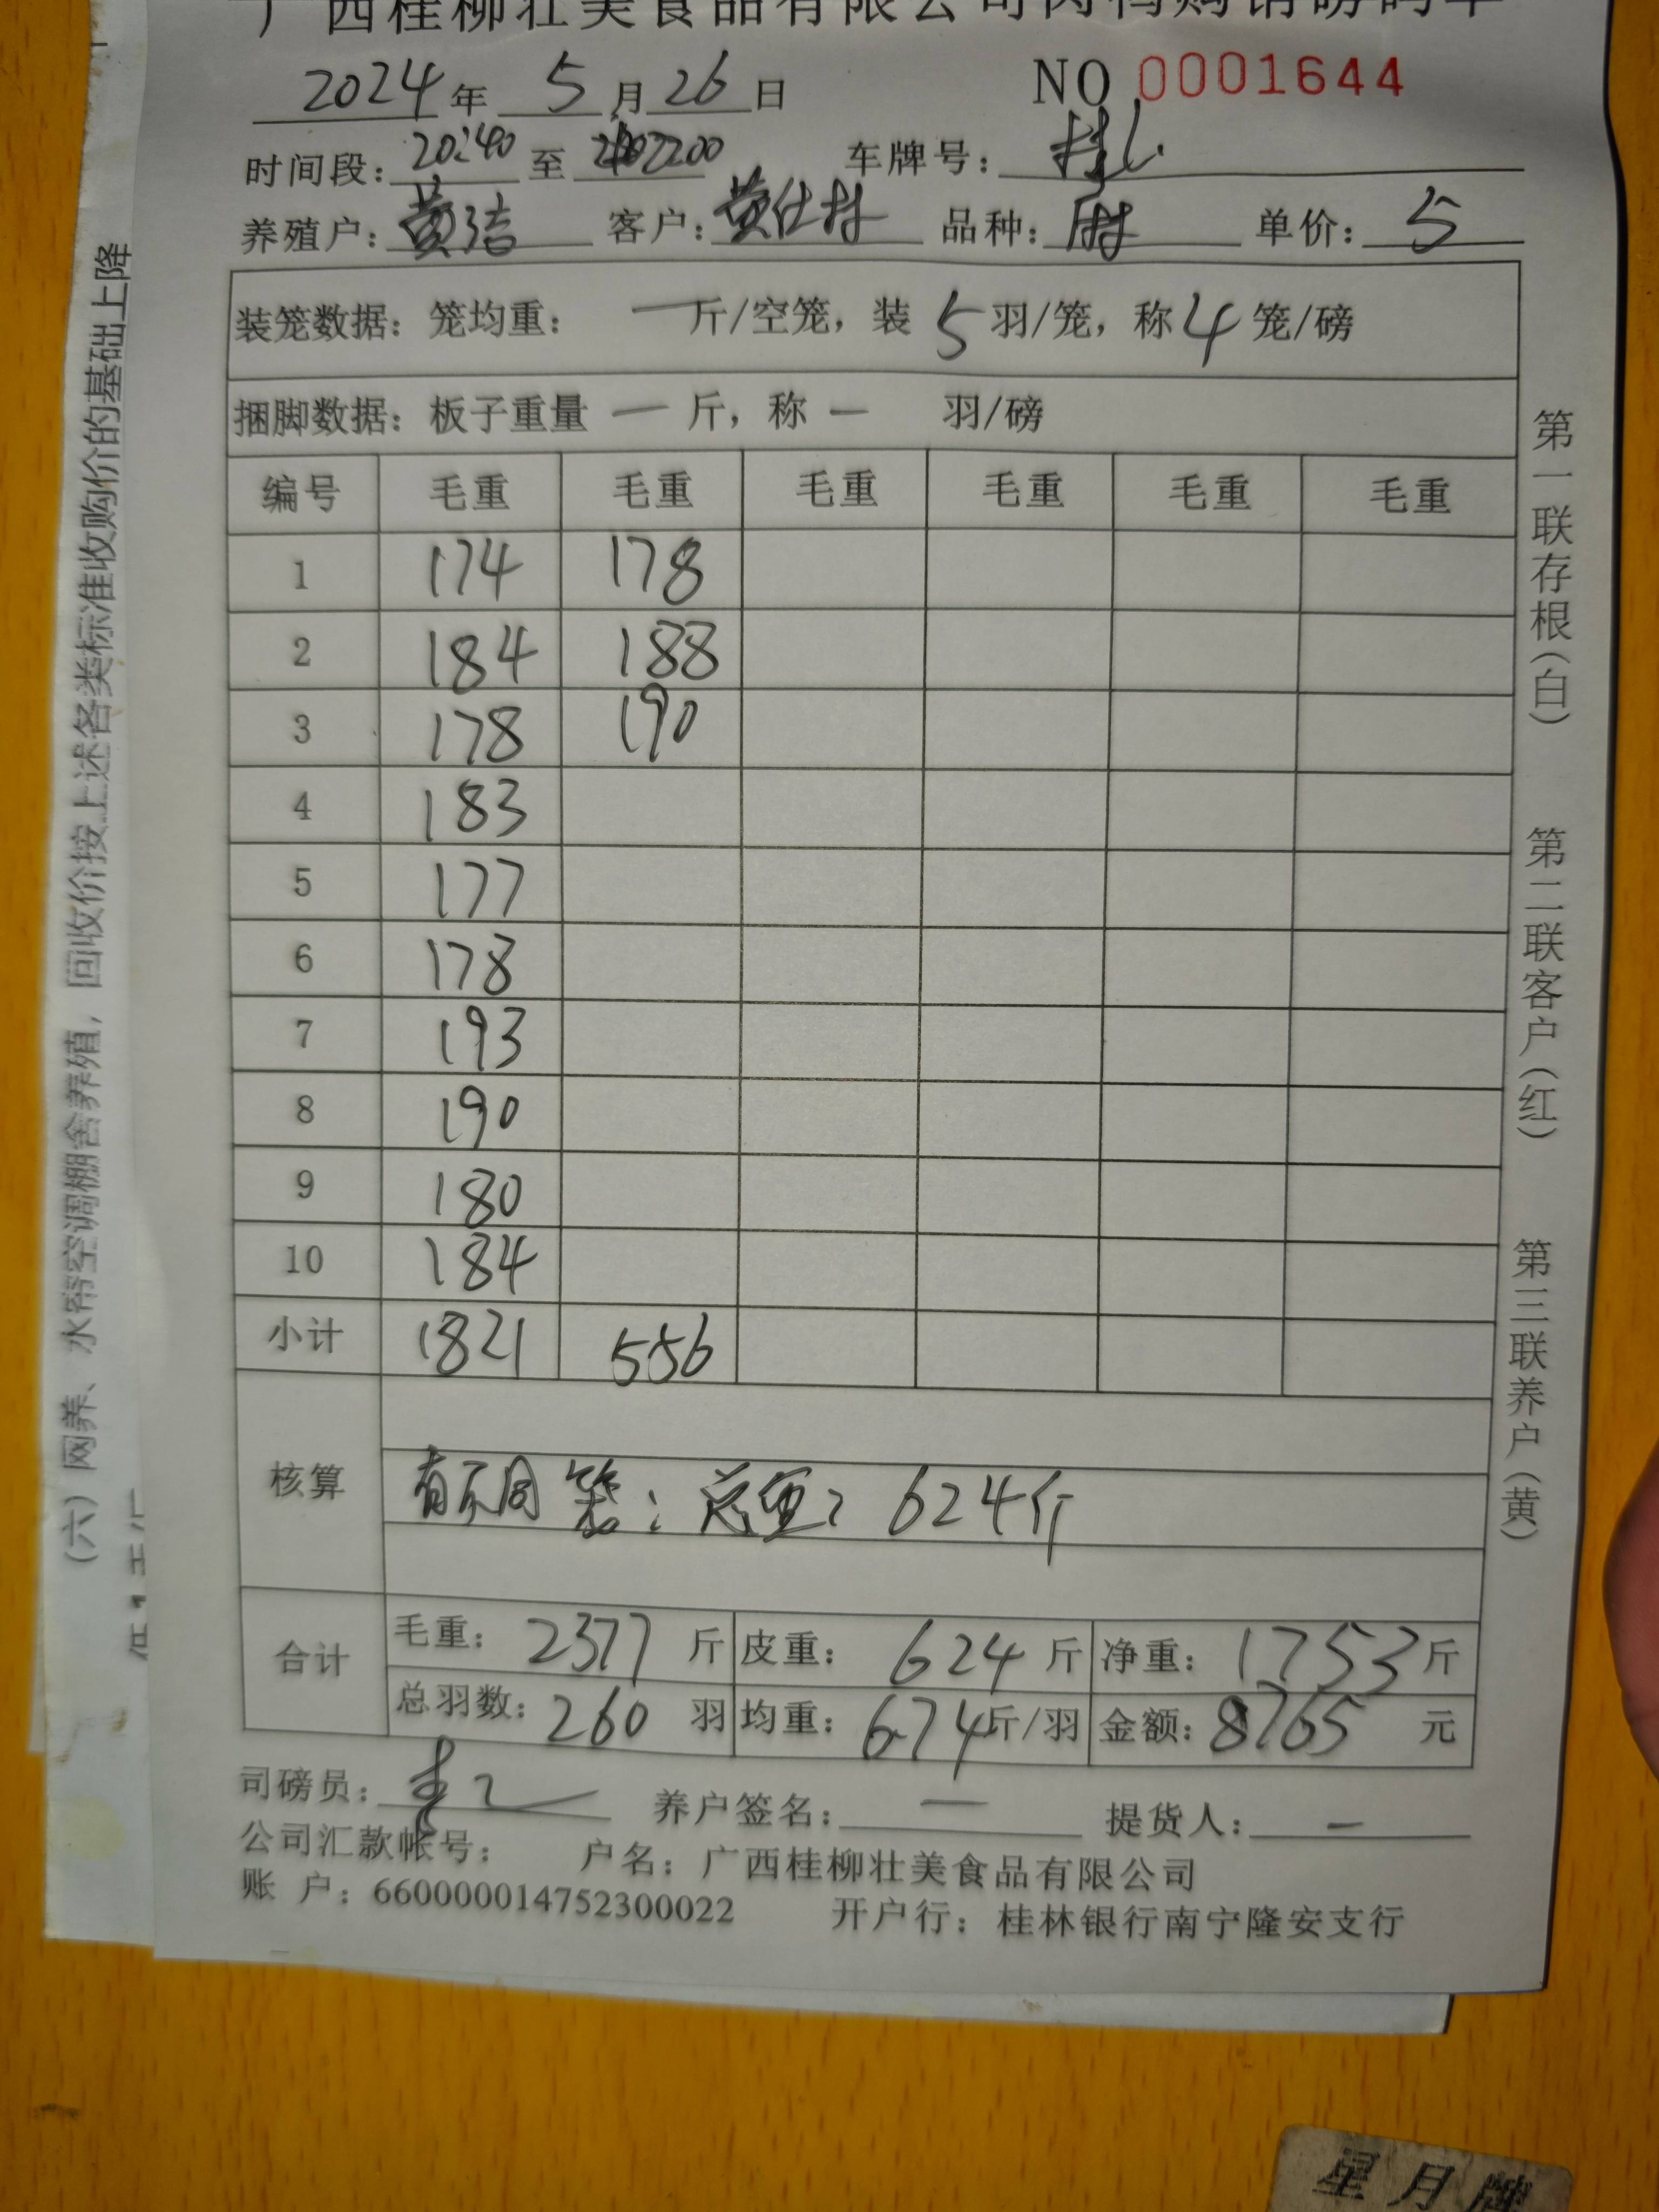 广西桂柳壮美食品有限公司肉鸭购销磅码单
2024年 5月26日 NO 0001644
时间段：20:40至2200 车牌号：
养殖户：黄洁 客户：黄仕林 品种： 单价：5
装笼数据：笼均重： 一斤/空笼，装5羽/笼，称4笼/磅
捆脚数据：板子重量一斤，称一 羽/磅
编号 毛重 毛重 毛重 毛重 毛重 毛重
1 174 178
2 184 188
3 178 190
4 183
5 177
6 178
7 193
8 190
9 180
10 184
小计 1821 556
核算 有不同笼：总重：624斤
合计 毛重：2377斤 皮重：624斤 净重：1753斤
总羽数：260羽 均重：6.74斤/羽 金额：8765元
司磅员： 养户签名：一 提货人：一
公司汇款帐号： 户名：广西桂柳壮美食品有限公司
账 户：660000014752300022 开户行：桂林银行南宁隆安支行
第一联存根（白） 第二联客户（红） 第三联养户（黄）
（六）网养、水帘空调棚舍养殖，回收价按上述各类标准收购价的基础上上降
星月牌